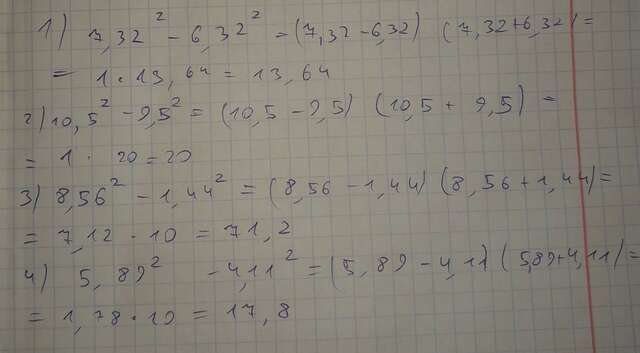 1) 7,32² - 6,32² = (7,32 - 6,32) (7,32 + 6,32) =
= 1 · 13,64 = 13,64
2) 10,5² - 9,5² = (10,5 - 9,5) (10,5 + 9,5) =
= 1 · 20 = 20
3) 8,56² - 1,44² = (8,56 - 1,44) (8,56 + 1,44) =
= 7,12 · 10 = 71,2
4) 5,89² - 4,11² = (5,89 - 4,11) (5,89 + 4,11) =
= 1,78 · 10 = 17,8